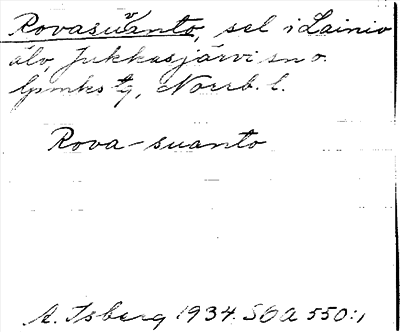 Rovasuvanto, sel i Lainio
älv, Jukkasjärvi sn o.
lpmks tg, Norrb. l.
Rova-suanto
A. Isberg 1934. SOA 550:1